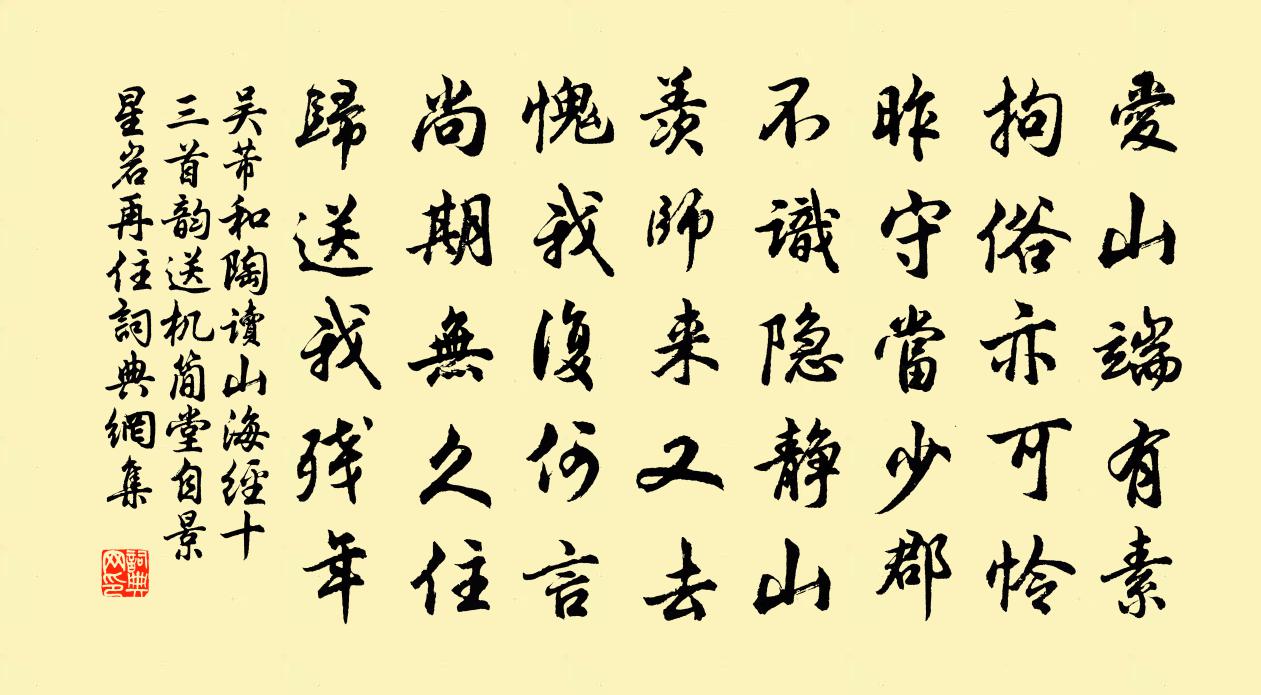 愛山端有素
拘俗亦可怜
昨守當少郡
不識隐静山
羨師来又去
愧我復何言
尚期無久住
歸送我残年
吴芾和陶讀山海經十
三首韵送机简堂自景
星岩再住詞典網集
詞典
网印